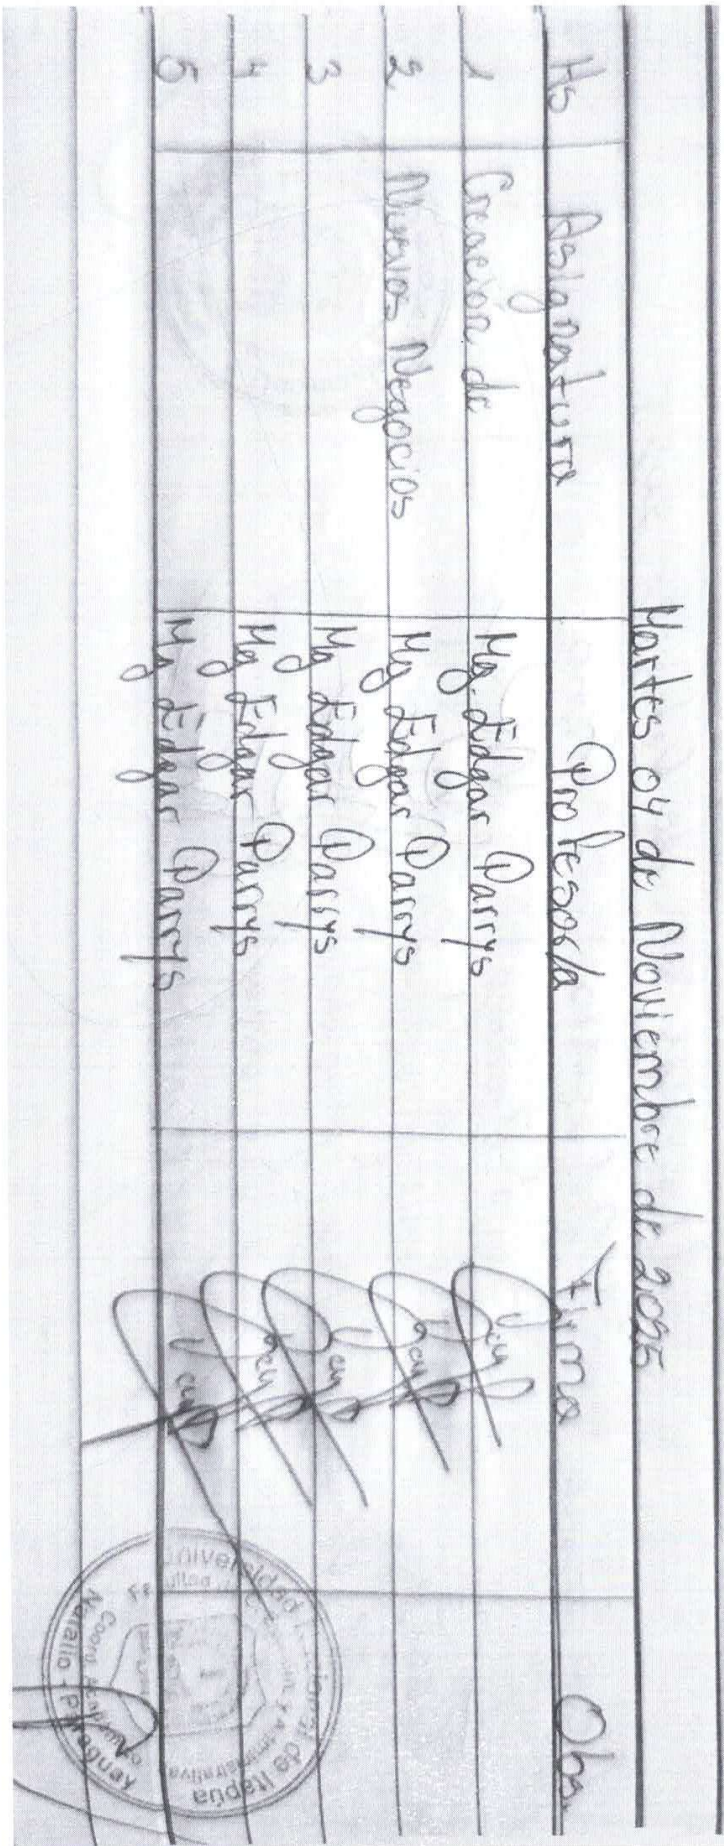 Martes 04 de Noviembre de 2025
Hs Asignatura Profesor/a Firma Obs.
1 Creación de Mg. Edgar Parrys
2 Nuevos Negocios Mg Edgar Parrys
3 Mg Edgar Parrys
4 Mg Edgar Parrys
5 Mg Edgar Parrys
Universidad de Itapúa
Natalio - Paraguay